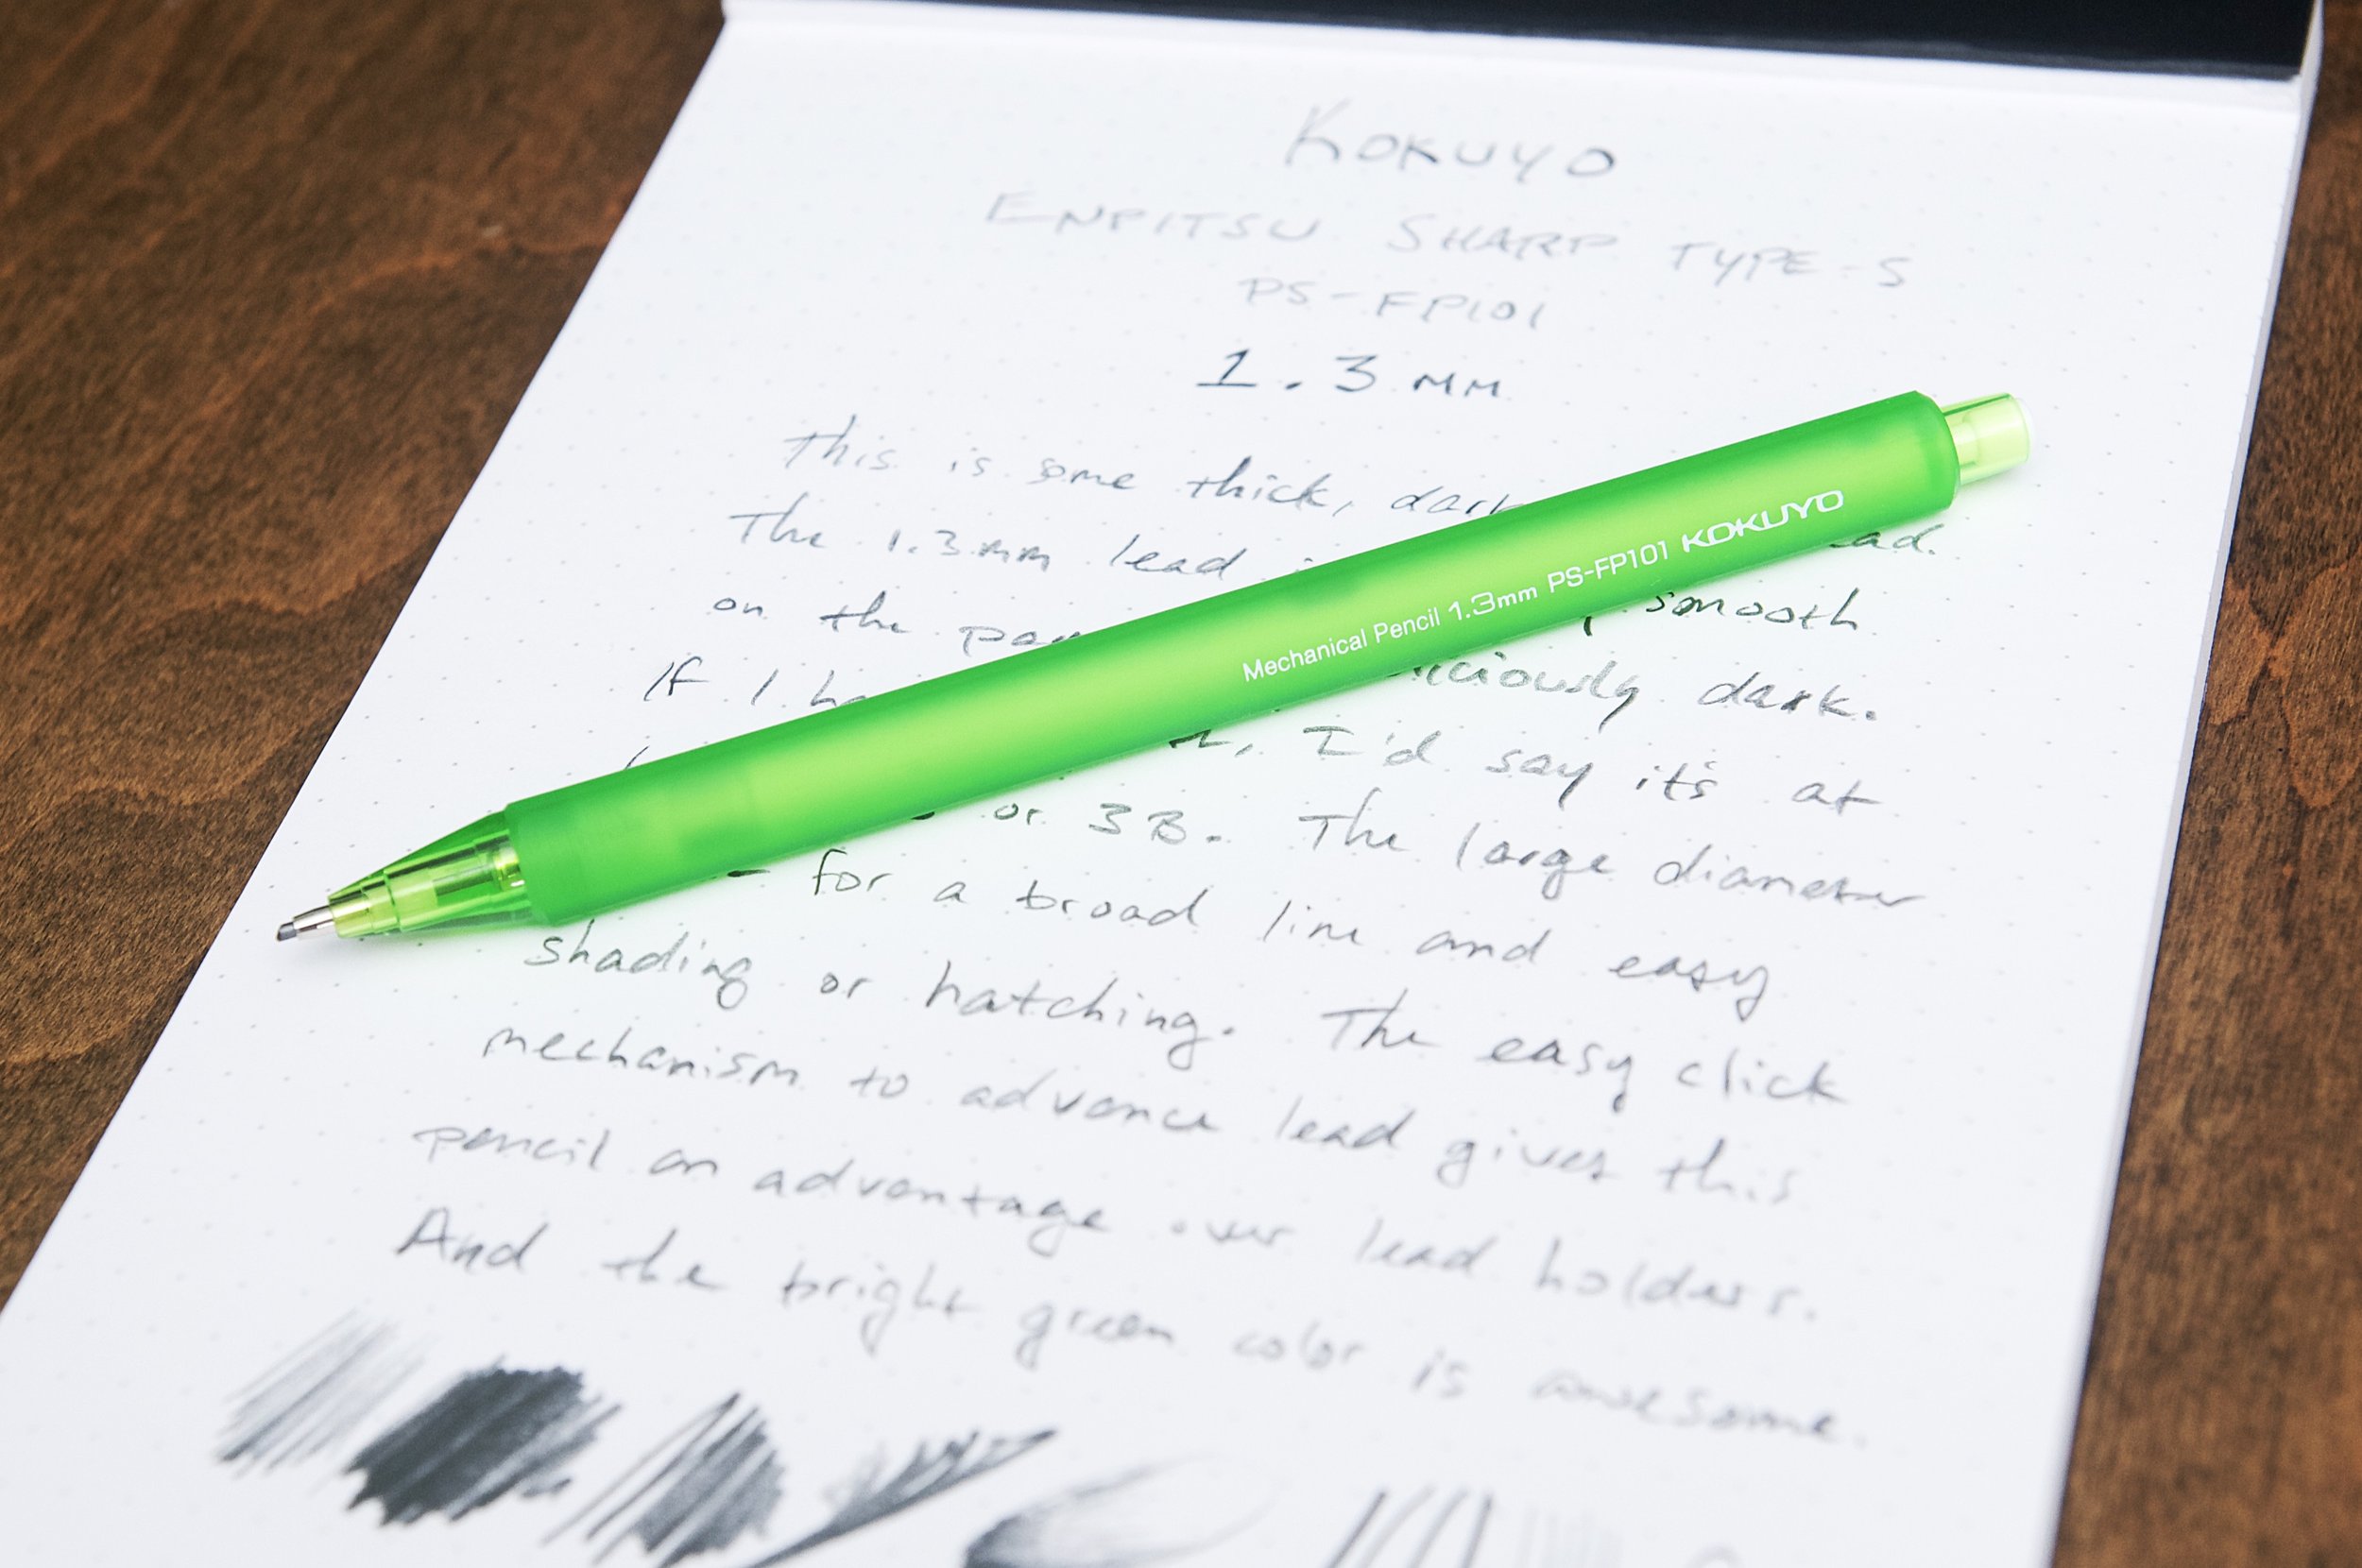 KOKUYO
ENPITSU SHARP TYPE-S
PS-FP101
1.3 MM
This is some thick, dark
The 1.3mm lead
on the smooth
If I dark.
I'd say it's at
or 3B. The large diameter
for a broad line and easy
shading or hatching. The easy click
mechanism to advance lead gives this
pencil an advantage over lead holders.
And the bright green color is awesome.
Mechanical Pencil 1.3mm PS-FP101 KOKUYO